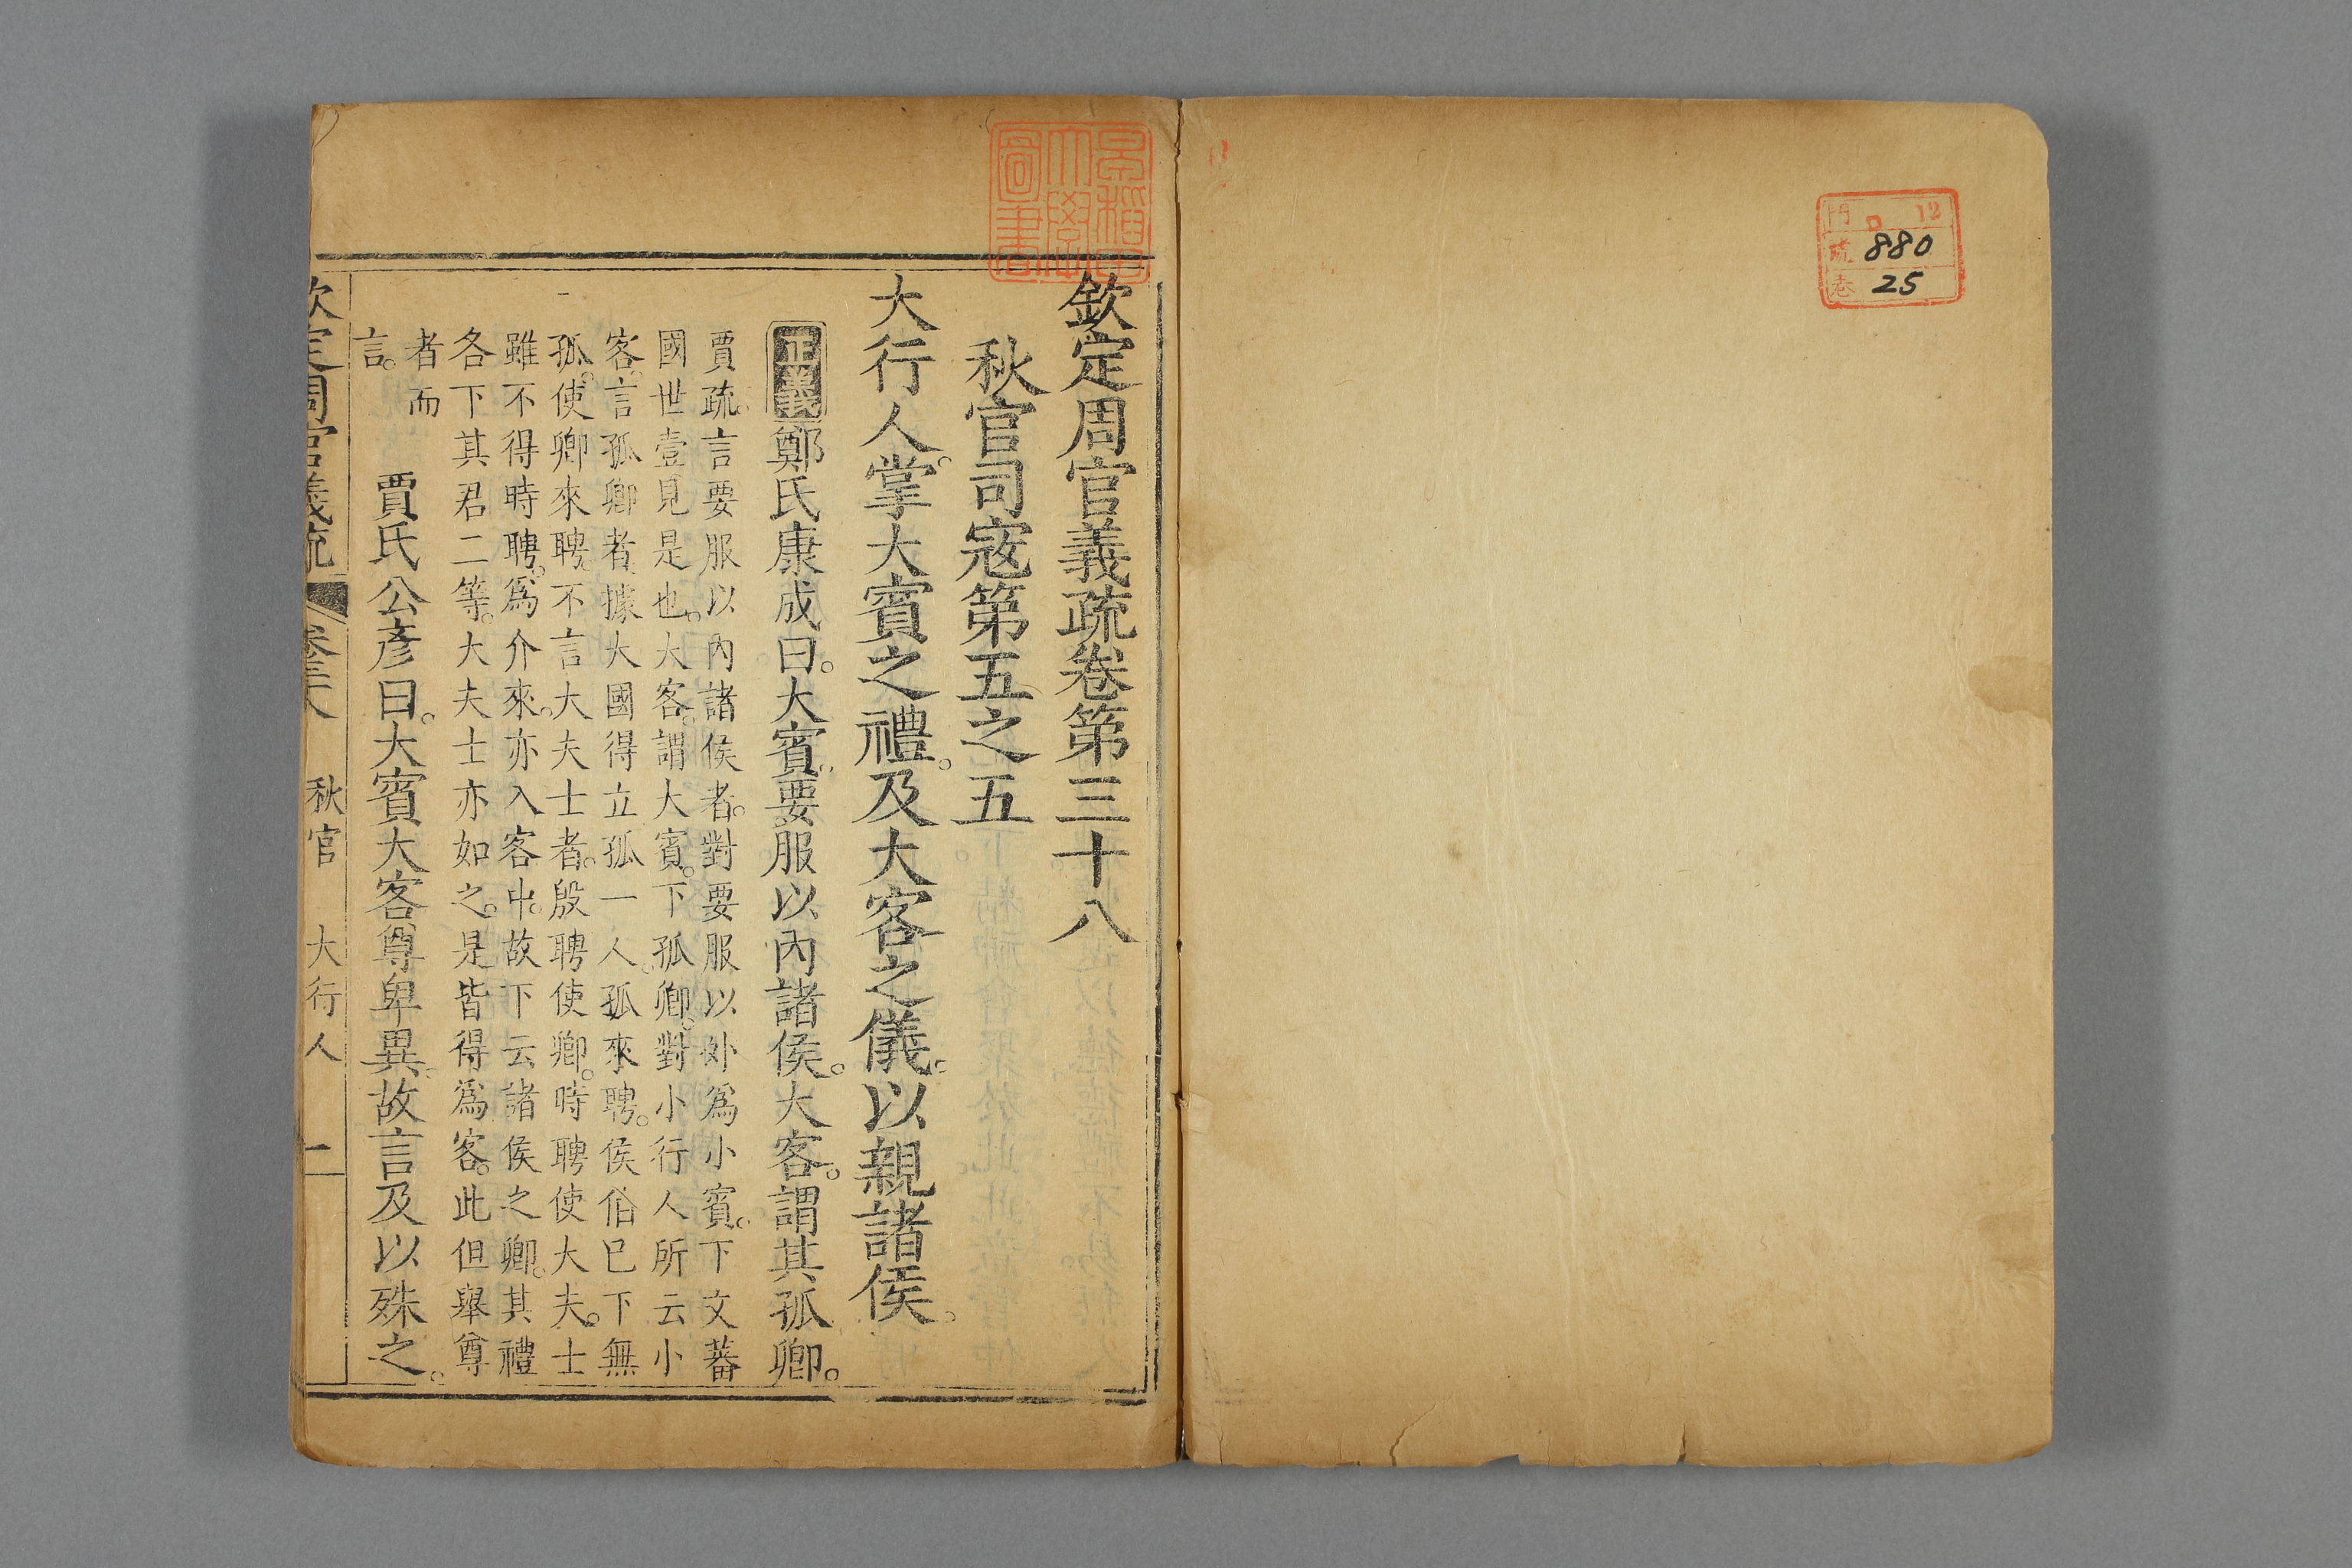 門 ロ 12
號 880
巻 25
早稲田
大學
圖書
欽定周官義疏卷第三十八
秋官司寇第五之五
大行人。掌大賓之禮。及大客之儀。以親諸侯。
正義鄭氏康成曰。大賓。要服以內諸侯。大客。謂其孤卿。
賈疏。言要服以內諸侯者。對要服以外爲小賓。下文蕃
國世壹見是也。大客。謂大賓。下孤卿。對小行人所云小
客。言孤卿者。據大國得立孤一人。孤來聘。侯伯已下無
孤。使卿來聘。不言大夫士者。殷聘使卿。時聘使大夫。士
雖不得時聘。爲介來。亦入客中。故下云諸侯之卿。其禮
各下其君二等。大夫士亦如之。是皆得爲客。此但舉尊
者而
言。
賈氏公彥曰。大賓大客尊卑異。故言及以殊之。
欽定周官義疏 卷三十八 秋官 大行人 二